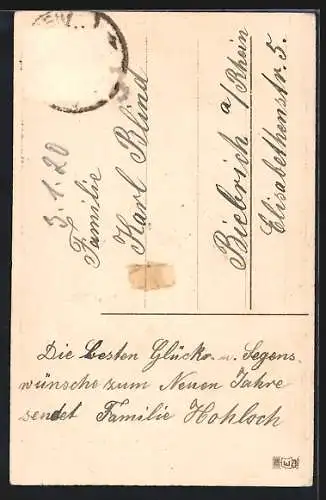 3.1.20
Familie
Karl Blind
Biebrich a/Rhein
Elisabethenstr. 5.
Die besten Glücks- u. Segens-
wünsche zum Neuen Jahre
sendet Familie Hohloch